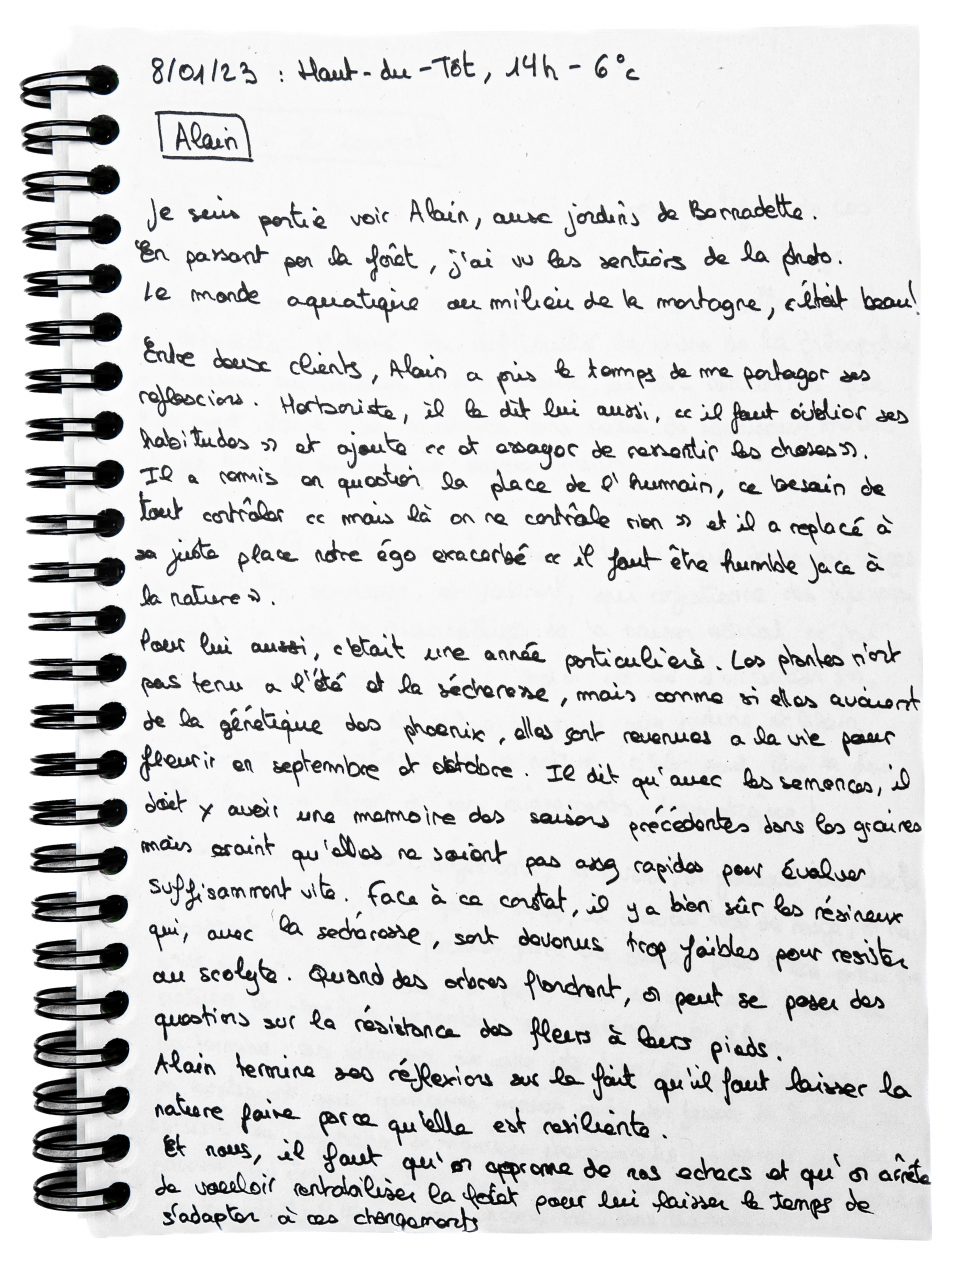 8/01/23 : Haut-du-Tôt, 14h - 6°c
Alain
Je suis partie voir Alain, aux jardins de Bernadette.
En passant par la forêt, j'ai vu les sentiers de la photo.
Le monde aquatique au milieu de la montagne, c'était beau!
Entre deux clients, Alain a pris le temps de me partager ses
reflexcions. Hortsoriste, il le dit lui aussi, « il faut oublier ses
habitudes » et ajoute « et essayer de ressentir les choses ».
Il a remis en question la place de l'humain, ce besoin de
tout contrôler « mais là on ne contrôle rien » et il a replacé à
sa juste place notre égo exacerbé « il faut être humble face à
la nature ».
Pour lui aussi, c'était une année particulière. Les plantes n'ont
pas tenu a l'été et la sécheresse, mais comme si elles avaient
de la génétique des phoenix, elles sont revenues a la vie pour
fleurir en septembre et octobre. Il dit qu'avec les semences, il
doit y avoir une memoire des saisons précédentes dans les graines
mais craint qu'elles ne soient pas assez rapides pour évoluer
suffisamment vite. Face à ce constat, il y a bien sûr les résineux
qui, avec la secheresse, sont devenus trop faibles pour resister
au scolyte. Quand des arbres flanchent, on peut se poser des
questions sur la résistance des fleurs à leurs pieds.
Alain termine ses réflexions sur le fait qu'il faut laisser la
nature faire parce qu'elle est resiliente.
Et nous, il faut qu'on apprenne de nos echecs et qu'on arrête
de vouloir rentabiliser la forêt pour lui laisser le temps de
s'adapter à ces changements